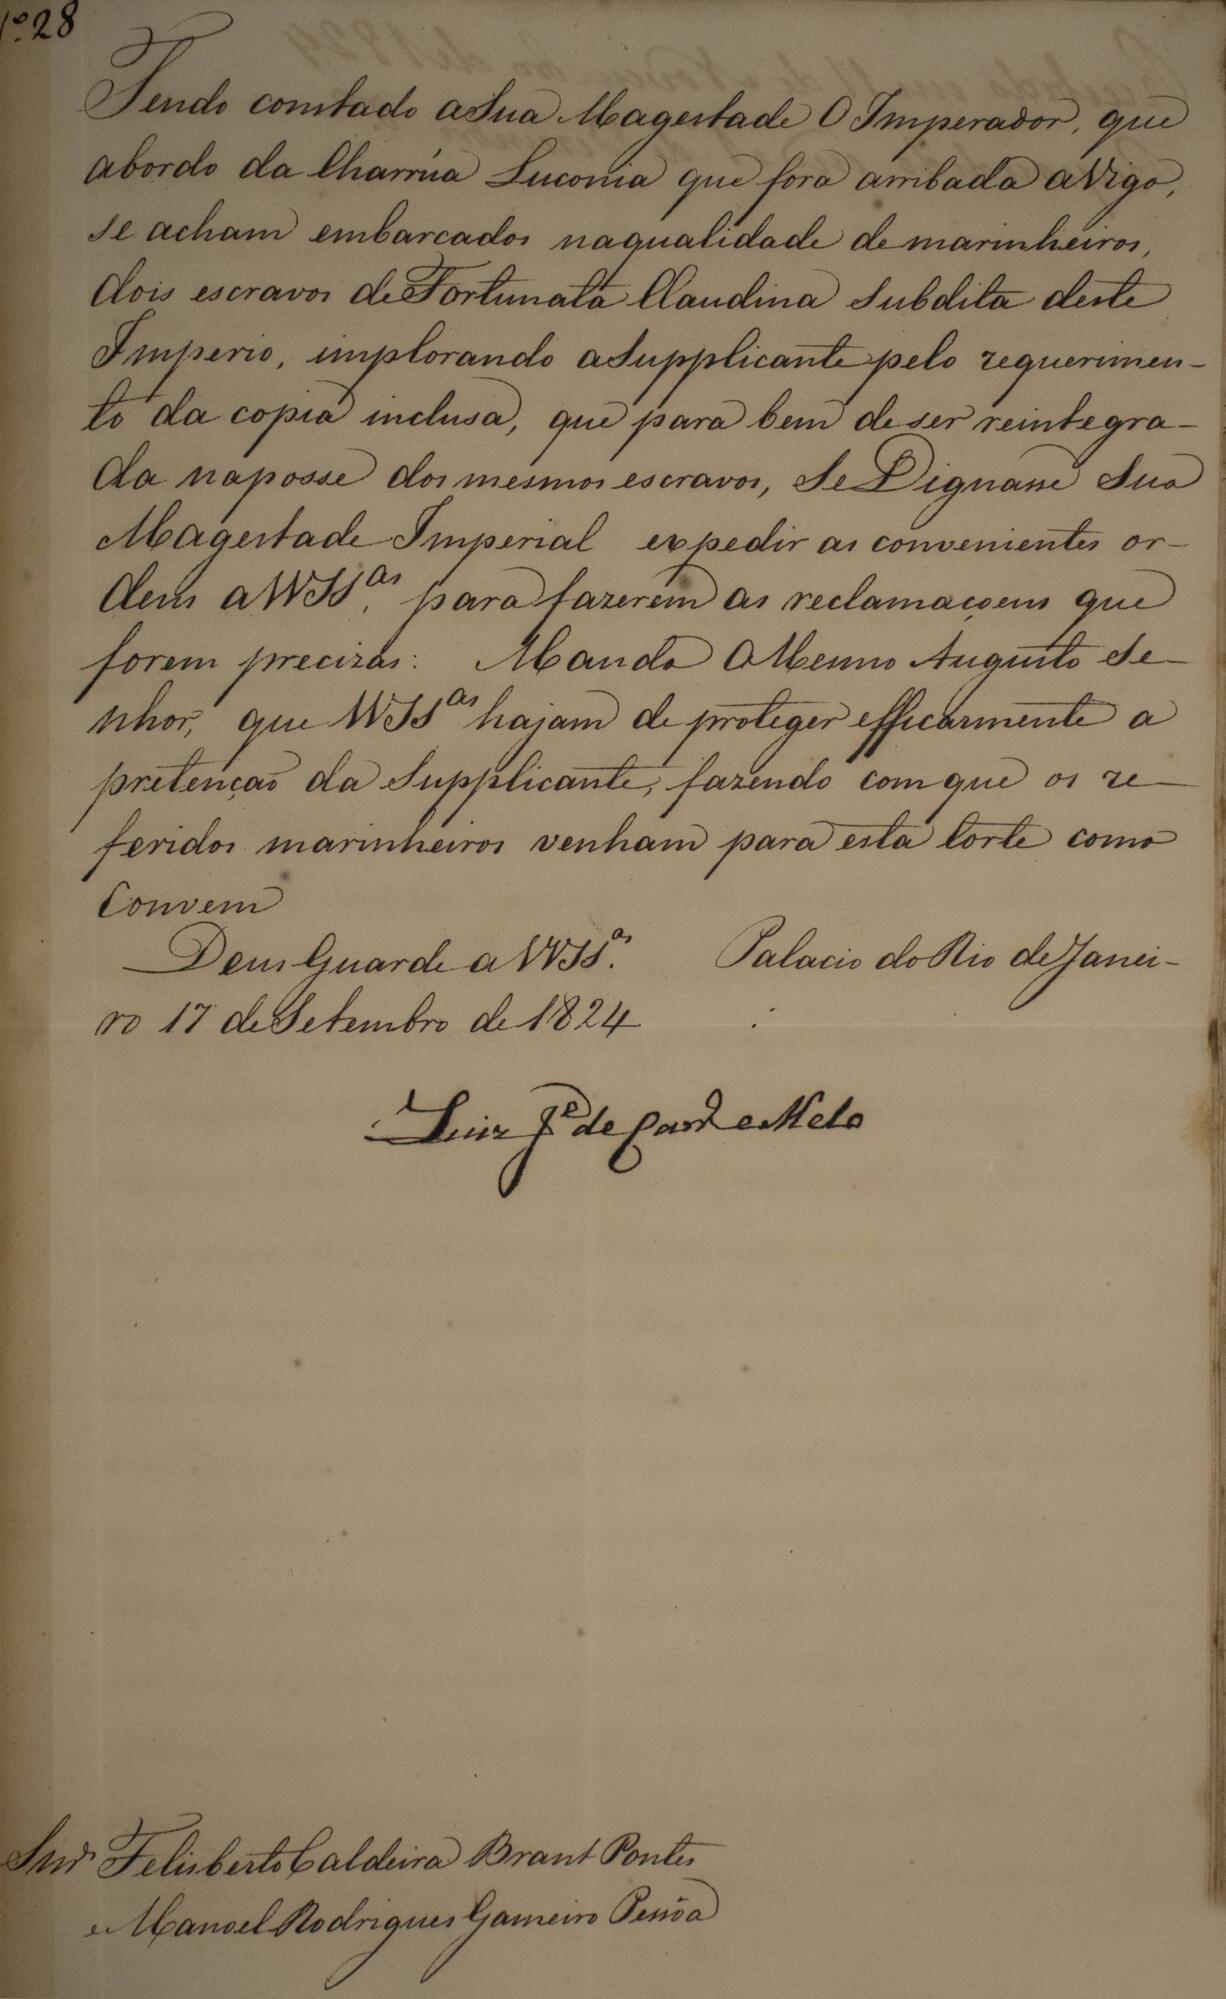 Nº 28
Tendo constado a Sua Magestade O Imperador, que
abordo da Charrúa Luconia que fora arribada a Vigo,
se acham embarcados na qualidade de marinheiros,
dois escravos de Fortunata Claudina Subdita deste
Imperio, implorando a Supplicante pelo requerimen-
to da copia inclusa, que para bem de ser reintegra-
da na posse dos mesmos escravos, Se Dignasse Sua
Magestade Imperial expedir as convenientes or-
dens a VVSSas. para fazerem as reclamaçoens que
forem precizas: Manda O Mesmo Augusto Se-
nhor, que VVSSas hajam de proteger efficasmente a
pretenção da Supplicante, fazendo com que os re-
feridos marinheiros venham para esta Corte como
Convem
Deus Guarde a VVSSas. Palacio do Rio de Janei-
ro 17 de Setembro de 1824
Luiz Je de Carvo e Melo
Snrs Felisberto Caldeira Brant Pontes
e Manoel Rodrigues Gameiro Pessôa